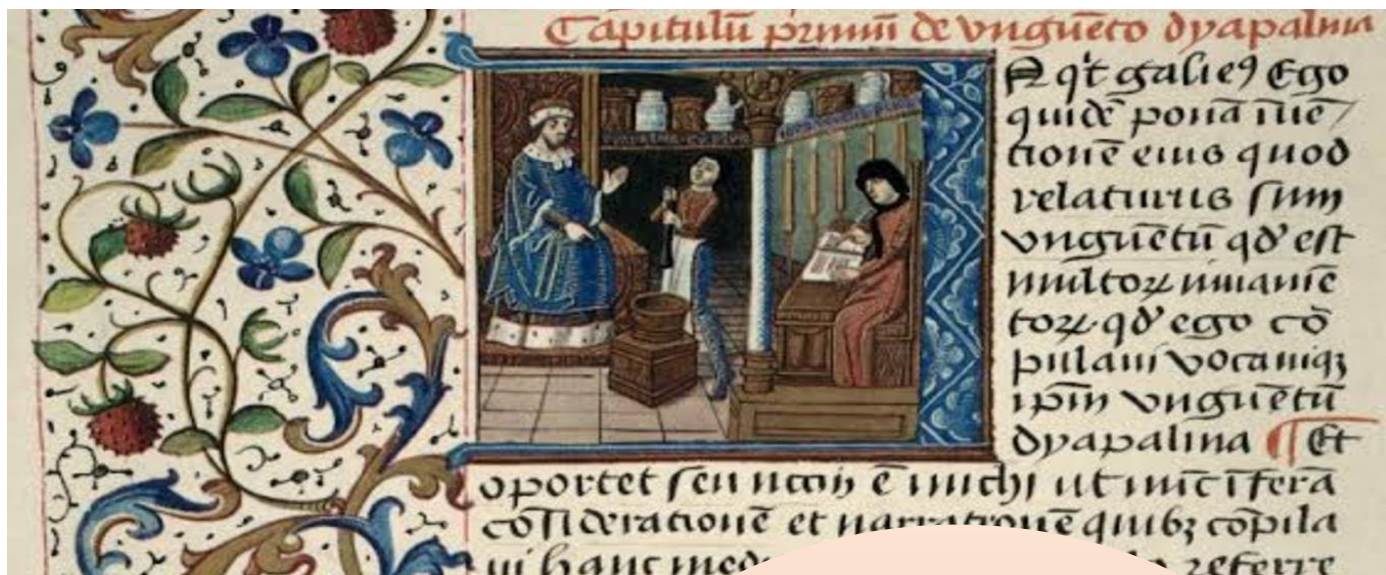 Capitulū primū de vnguēto dyapalma
N q't galie9 Ego
quidē ponā īuē
tionē eius quod
relaturus sum
vnguētū qd' est
multoꝝ iuuamē
toꝝ qd' ego cō
pilaui vocauiqꝫ
ip̄m vnguētū
dyapalma ¶ Et
oportet ē michi ut nūc īferā
cōsiderationē et narrationē quibꝫ cōpila
ui hanc referre